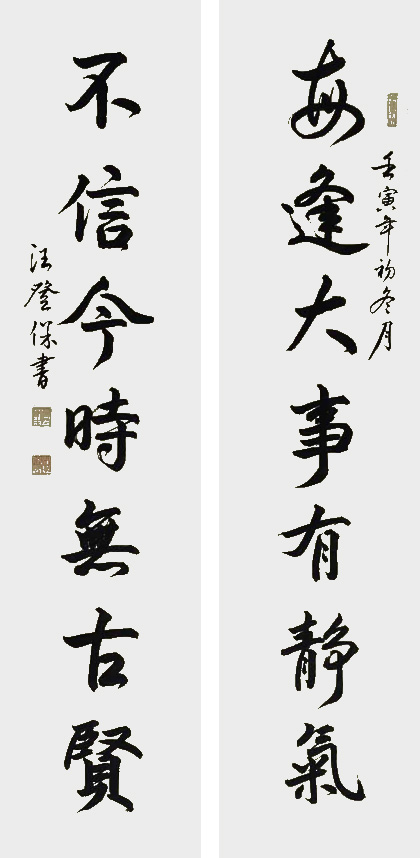 每逢大事有静氣
壬寅年初冬月
不信今時無古賢
汪登保書